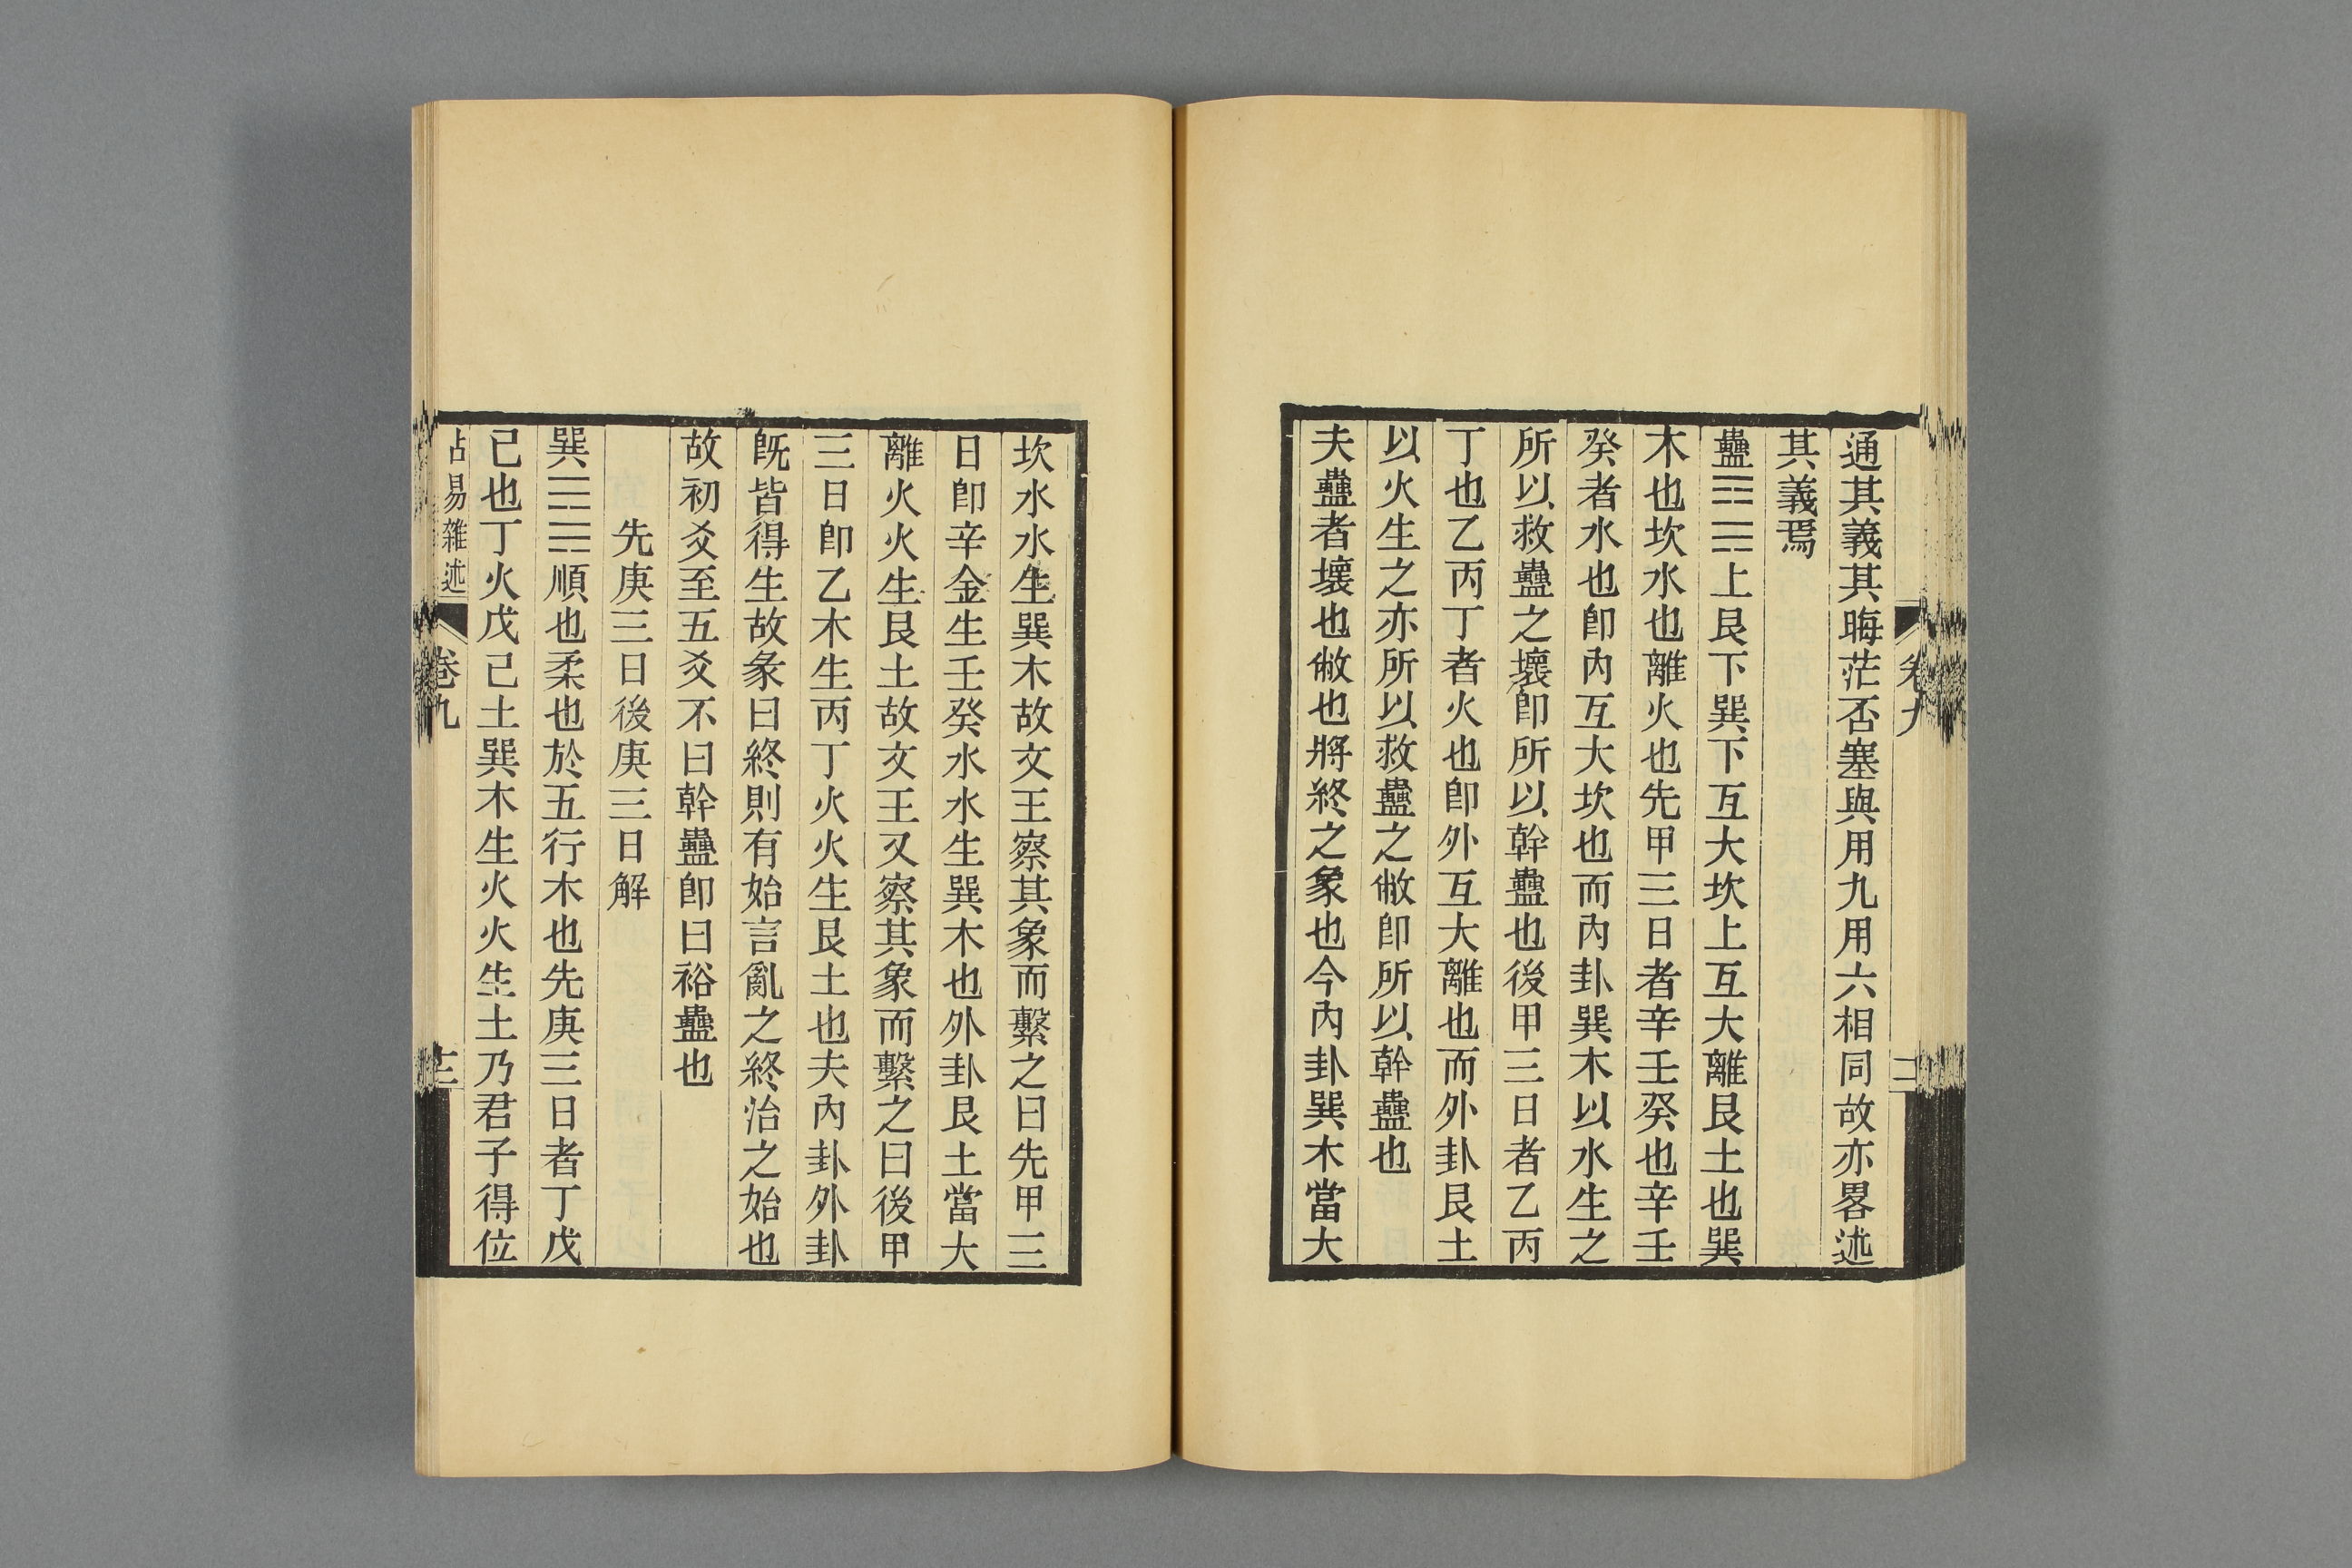 通其義其晦茫否塞與用九用六相同故亦畧述
其義焉
蠱䷑上艮下巽下互大坎上互大離艮土也巽
木也坎水也離火也先甲三日者辛壬癸也辛壬
癸者水也卽內互大坎也而內卦巽木以水生之
所以救蠱之壞卽所以幹蠱也後甲三日者乙丙
丁也乙丙丁者火也卽外互大離也而外卦艮土
以火生之亦所以救蠱之敝卽所以幹蠱也
夫蠱者壞也敝也將終之象也今內卦巽木當大
坎水水生巽木故文王察其象而繫之曰先甲三
日卽辛金生壬癸水水生巽木也外卦艮土當大
離火火生艮土故文王又察其象而繫之曰後甲
三日卽乙木生丙丁火火生艮土也夫內卦外卦
旣皆得生故彖曰終則有始言亂之終治之始也
故初爻至五爻不曰幹蠱卽曰裕蠱也
先庚三日後庚三日解
巽䷸順也柔也於五行木也先庚三日者丁戊
己也丁火戊己土巽木生火火生土乃君子得位
占易雜述 卷九